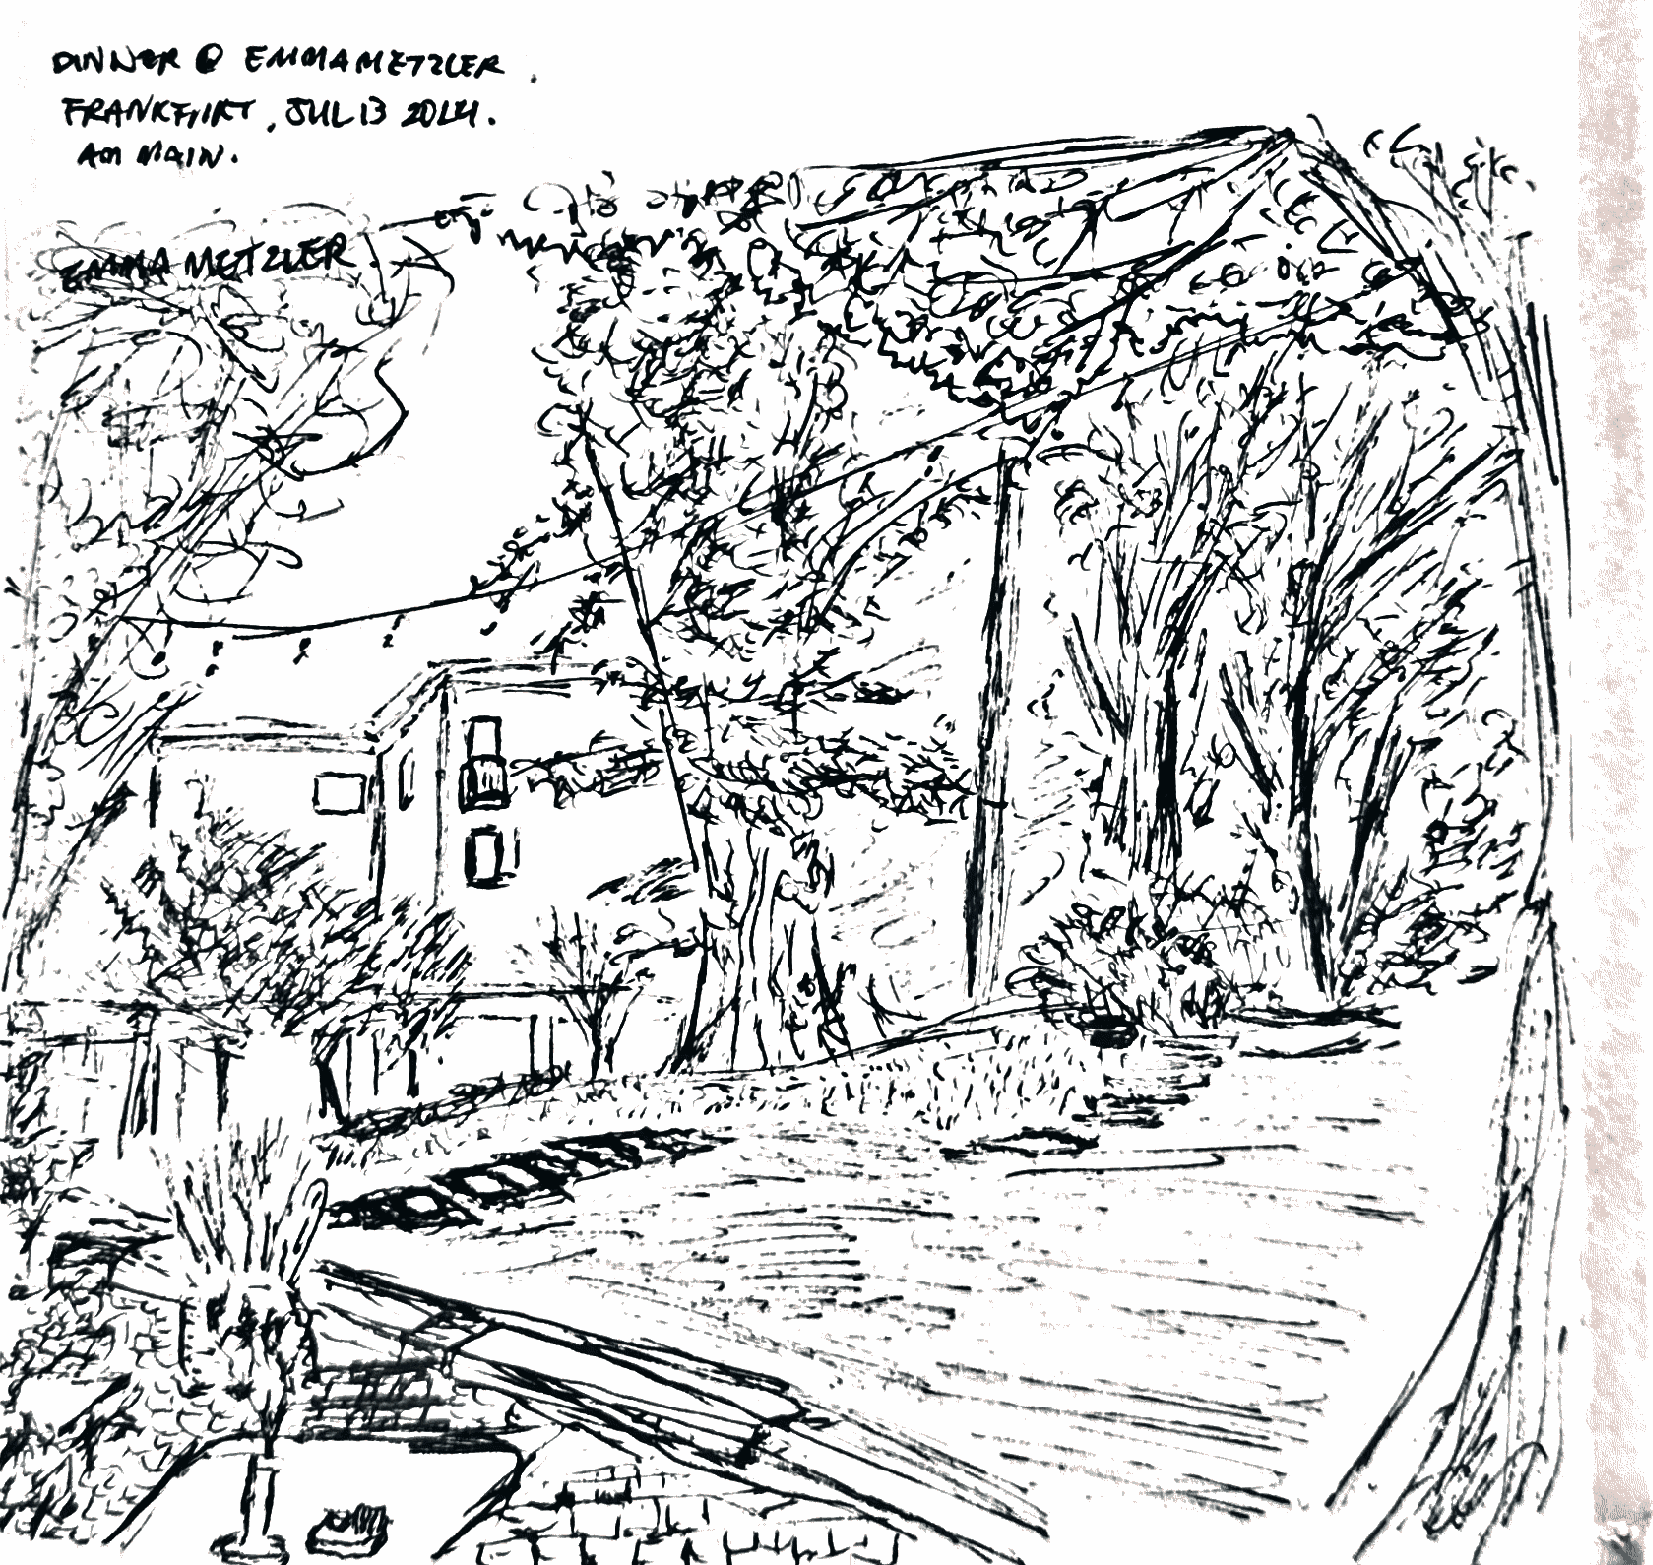 DINNER @ EMMA METZLER
FRANKFURT, JUL 13 2014.
AM MAIN.
EMMA METZLER